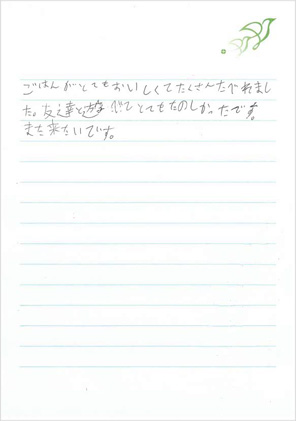 ごはんがとてもおいしくてたくさんたべれまし
た。友達と遊んでとてもたのしかったです。
また来たいです。